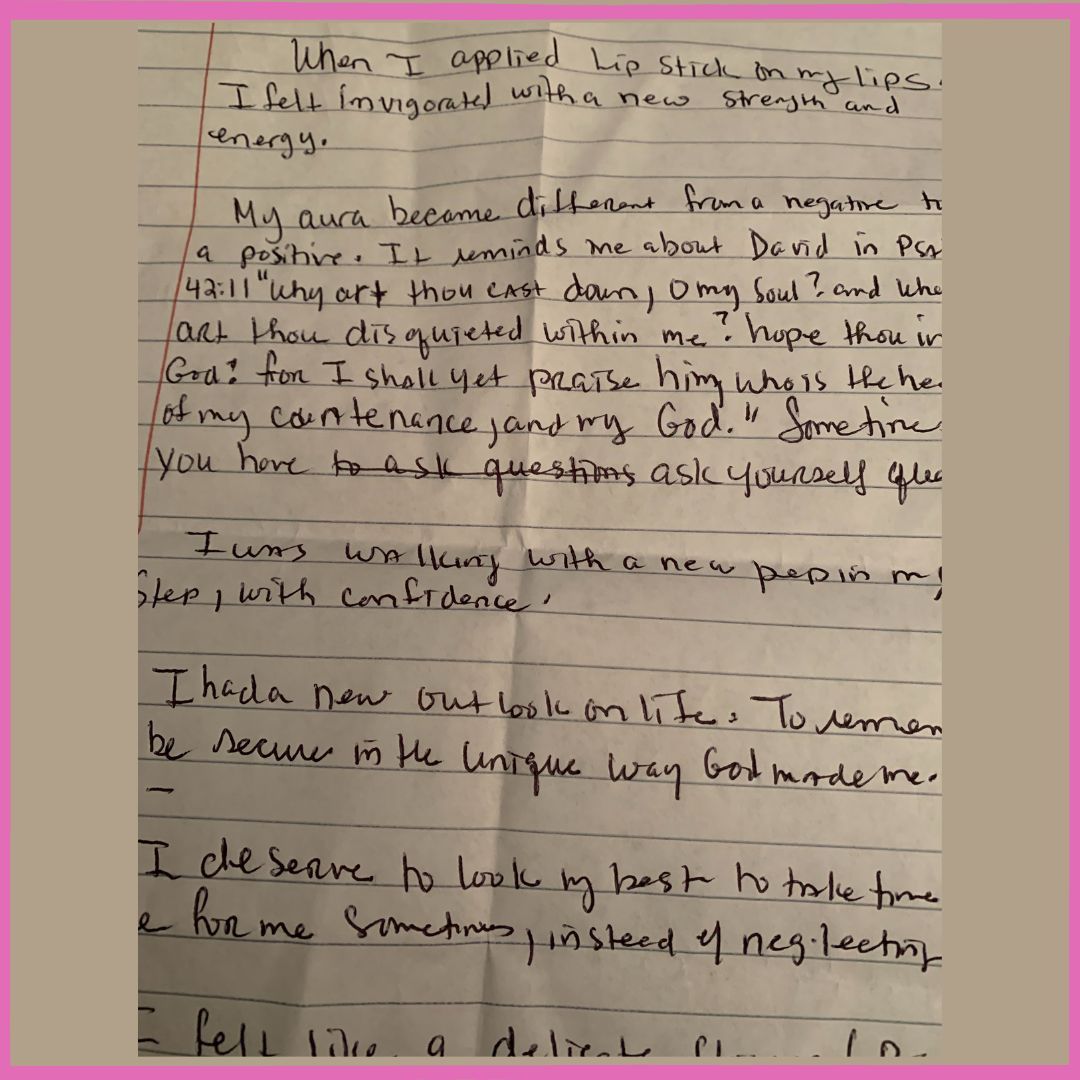 When I applied Lip stick on my lips.
I felt invigorated with a new strength and
energy.
My aura became different from a negative to
a positive. It reminds me about David in Psa
42:11 "Why art thou cast down, O my soul? and whe
art thou disquieted within me? hope thou in
God: for I shall yet praise him, who is the he
of my countenance, and my God." Sometime
you have to ask questions ask yourself que
I was walking with a new pep in my
Step, with confidence.
I had a new outlook on life. To remem
be secure in the unique way God made me.
I deserve to look my best to take time
e for me sometimes, instead of neglecting
I felt like a delicate